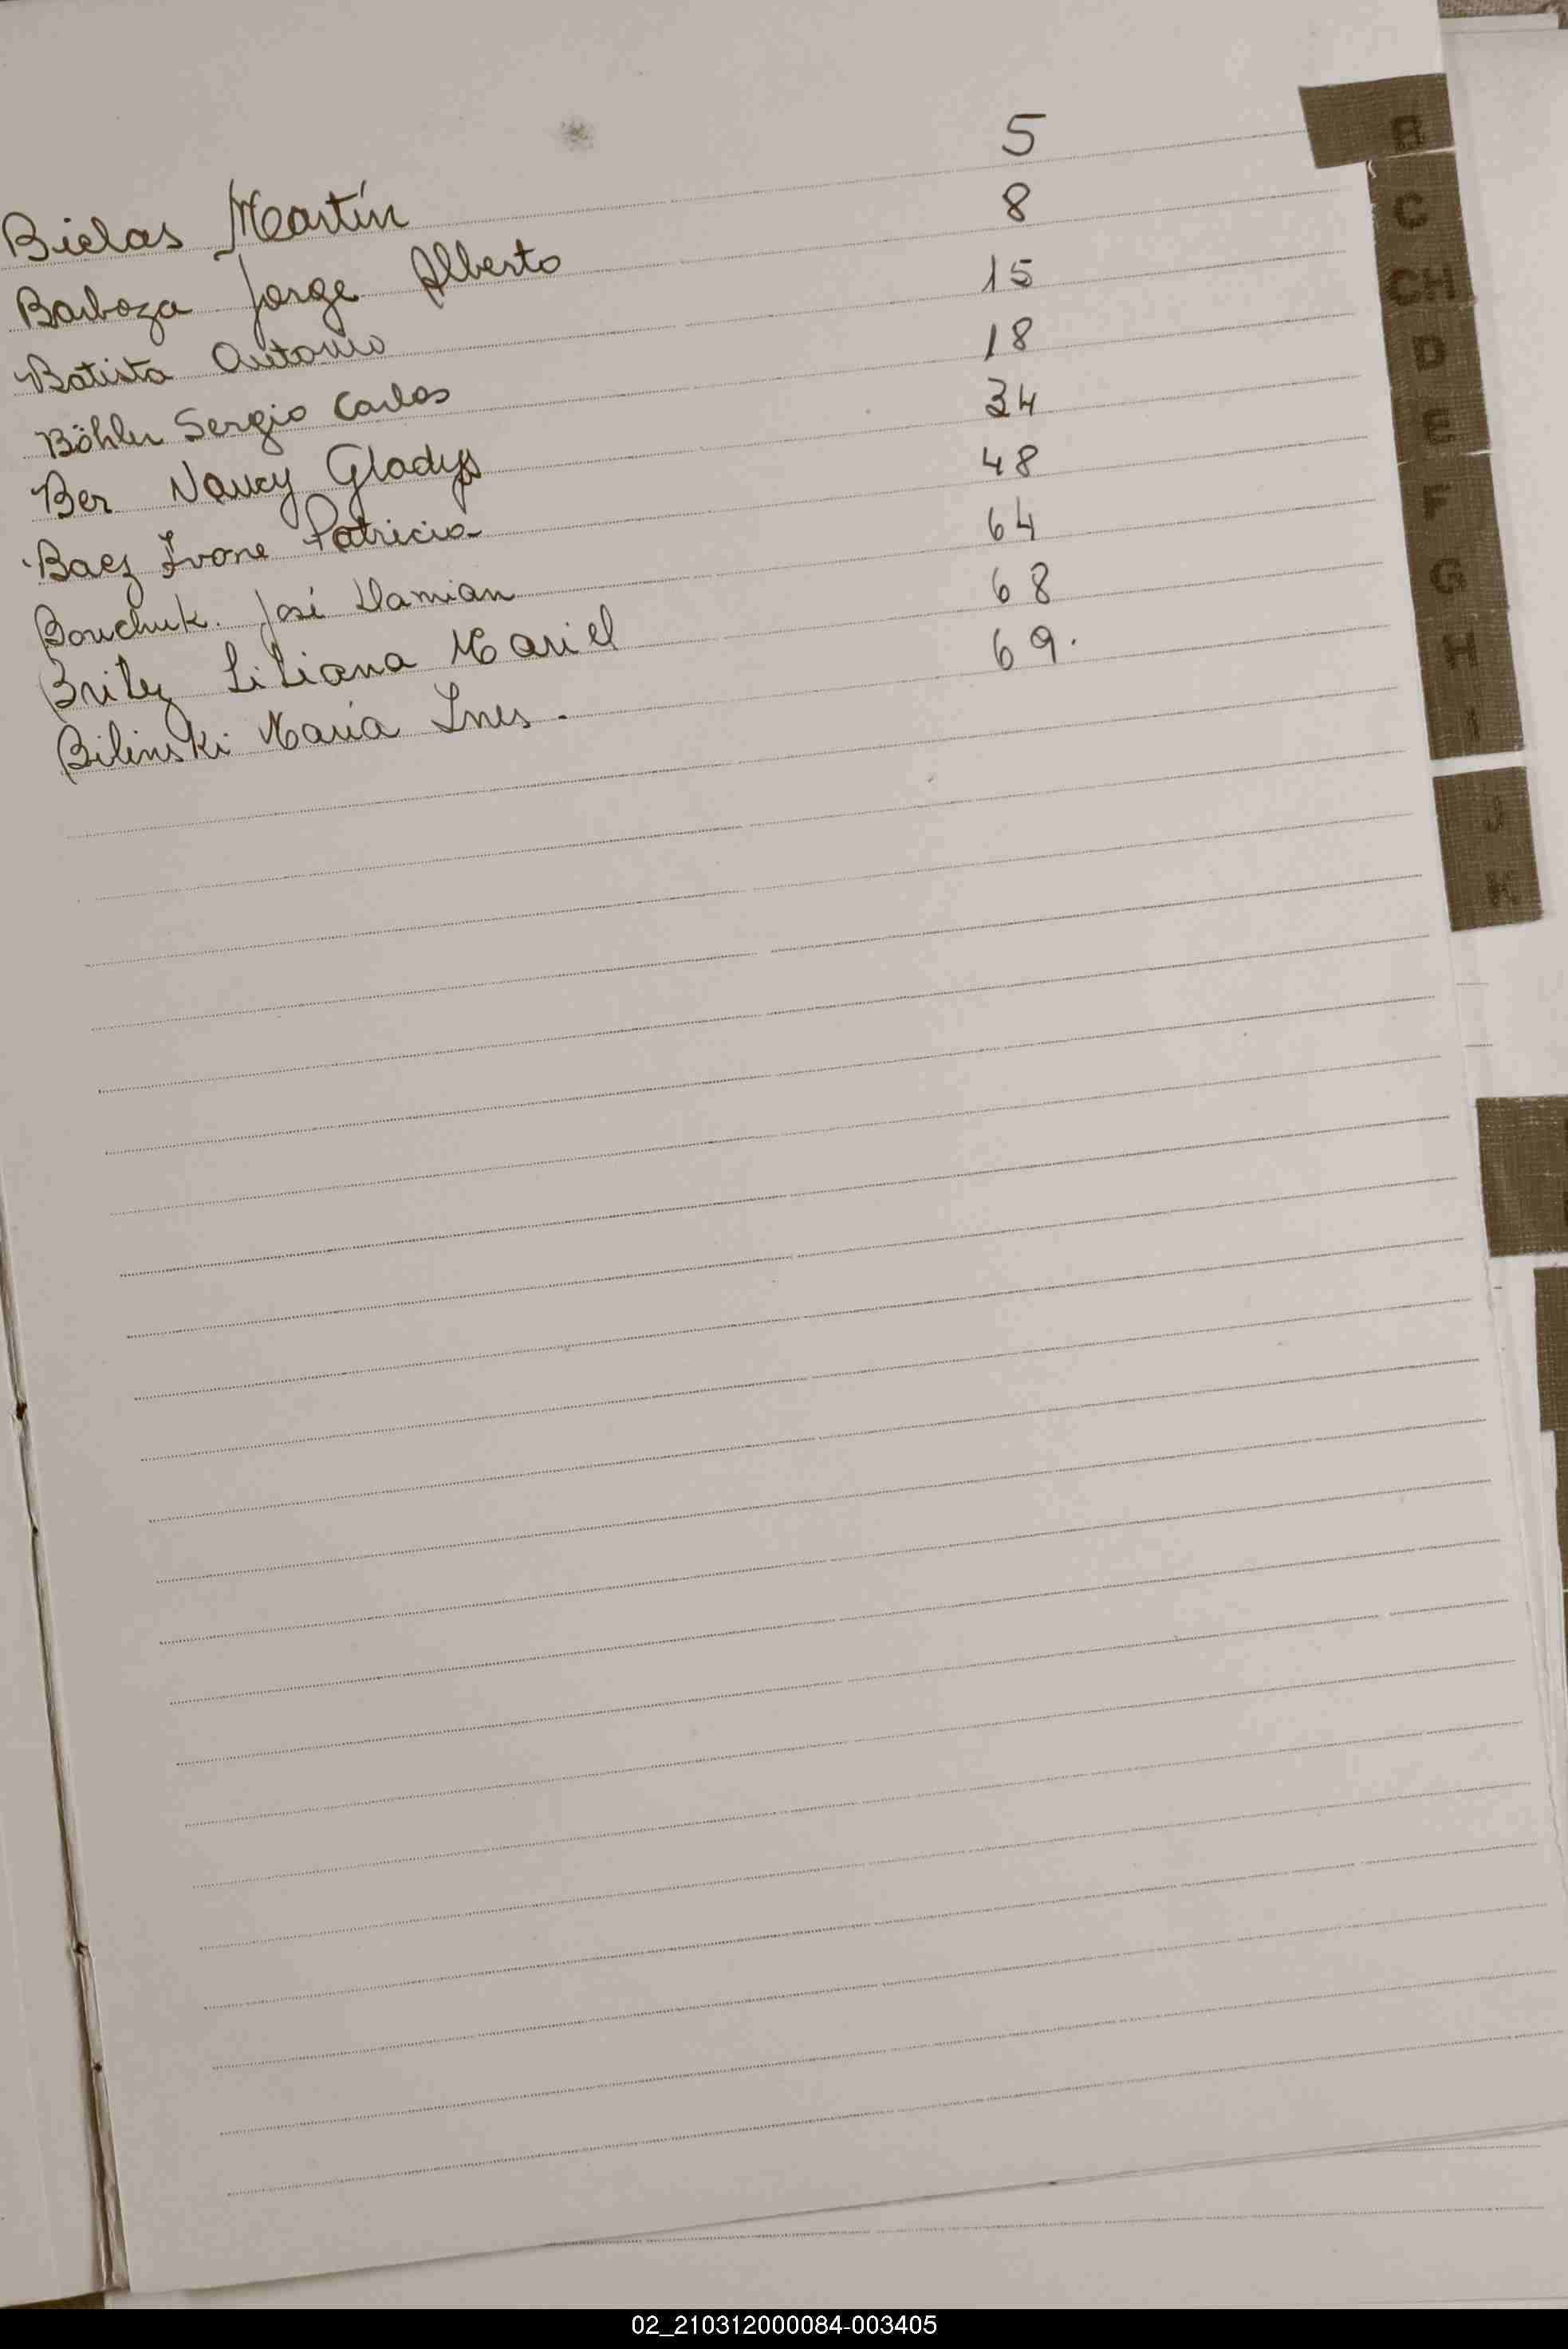 Bielas Martín 5
Barboza Jorge Alberto 8
Batista Antonio 15
Böhler Sergio Carlos 18
Ber Nancy Gladys 34
Baez Ivone Patricia 48
Bouchuk. José Damian 64
Britez Liliana Mariel 68
Bilinski María Ines - 69.
B
C
CH
D
E
F
G
H
I
J
K
02_210312000084-003405